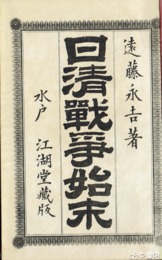 遠藤永吉著
日清戰爭始末
水戸 江湖堂藏版